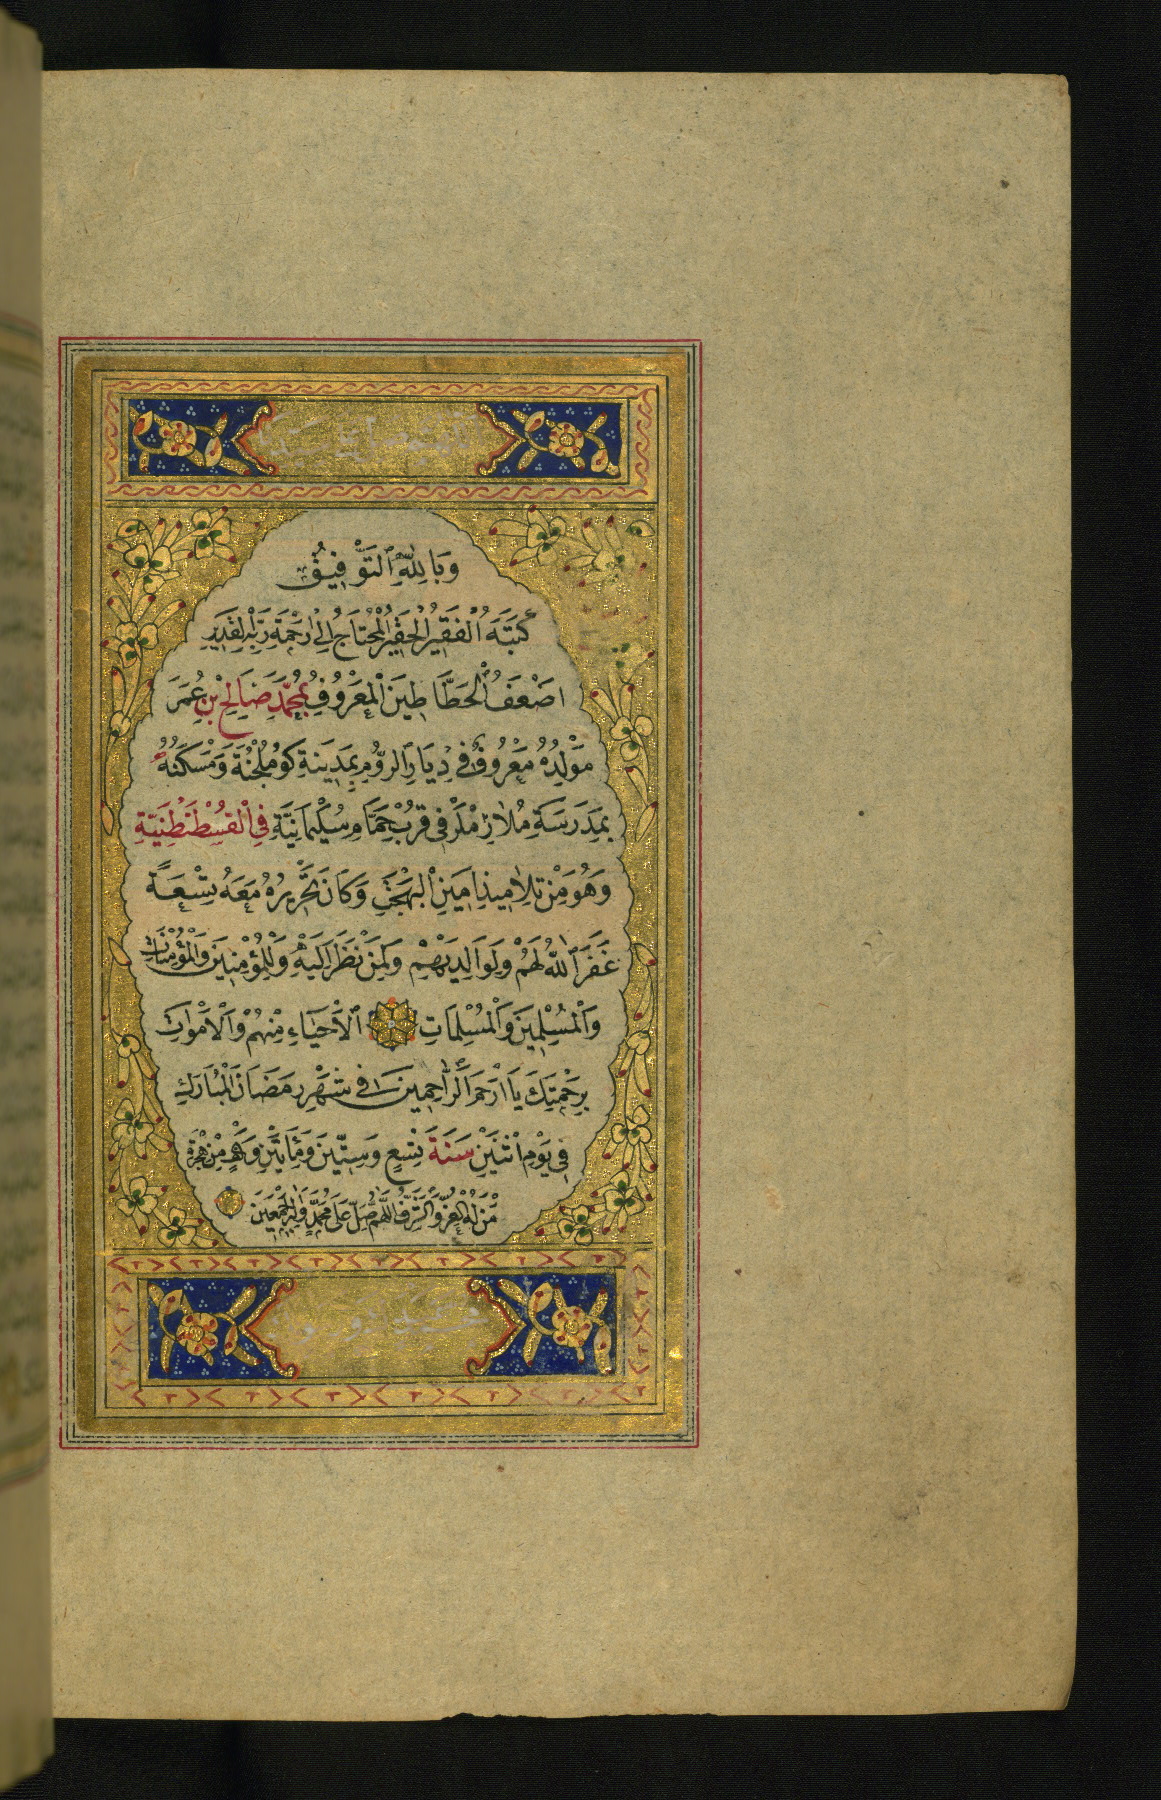 وَبِاللّٰهِ ٱلتَّوْفِيقُ
كَتَبَهُ ٱلْفَقِيرُ ٱلْحَقِيرُ ٱلْمُحْتَاجُ إِلَىٰ رَحْمَةِ رَبِّهِ ٱلْقَدِيرِ
اَضْعَفُ الْخَطَّاطِينَ الْمَعْرُوفُ بِمُحَمَّدْ صَالِحْ بْنِ عُمَرَ
مَوْلِدُهُ مَعْرُوفٌ فِي دِيَارِ الرُّومِ بِمَدِينَةِ كَوْمُلْجُنَةَ وَمَسْكَنُهُ
بِمَدْرَسَةِ مُلَازِمْلَرْ فِي قُرْبِ حَمَّامِ سُلَيْمَانِيَّةِ فِي الْقُسْطَنْطِنِيَّةِ
وَهُوَ مِنْ تَلَامِيذِ اَمِينِ الْبَهْجَتِي وَكَانَ تَحْرِيرُهُ مَعَهُ تِسْعَةً
غَفَرَ ٱللّٰهُ لَهُمْ وَلِوَالِدِيهِمْ وَلِمَنْ نَظَرَ اِلَيْهِ وَلِلْمُؤْمِنِينَ وَالْمُؤْمِنَاتِ
وَالْمُسْلِمِينَ وَالْمُسْلِمَاتِ ٱلْأَحْيَاءِ مِنْهُمْ وَالْأَمْوَاتِ
بِرَحْمَتِكَ يَا اَرْحَمَ الرَّاحِمِينَ فِي شَهْرِ رَمَضَانَ الْمُبَارَكِ
فِي يَوْمِ اثْنَيْنِ سَنَةَ تِسْعٍ وَسِتِّينَ وَمِائَتَيْنِ وَاَلْفٍ مِنْ هِجْرَةِ
مَنْ لَهُ الْعِزُّ وَالشَّرَفُ اللّٰهُمَّ صَلِّ عَلَى مُحَمَّدٍ وَآلِهِ اَجْمَعِينَ